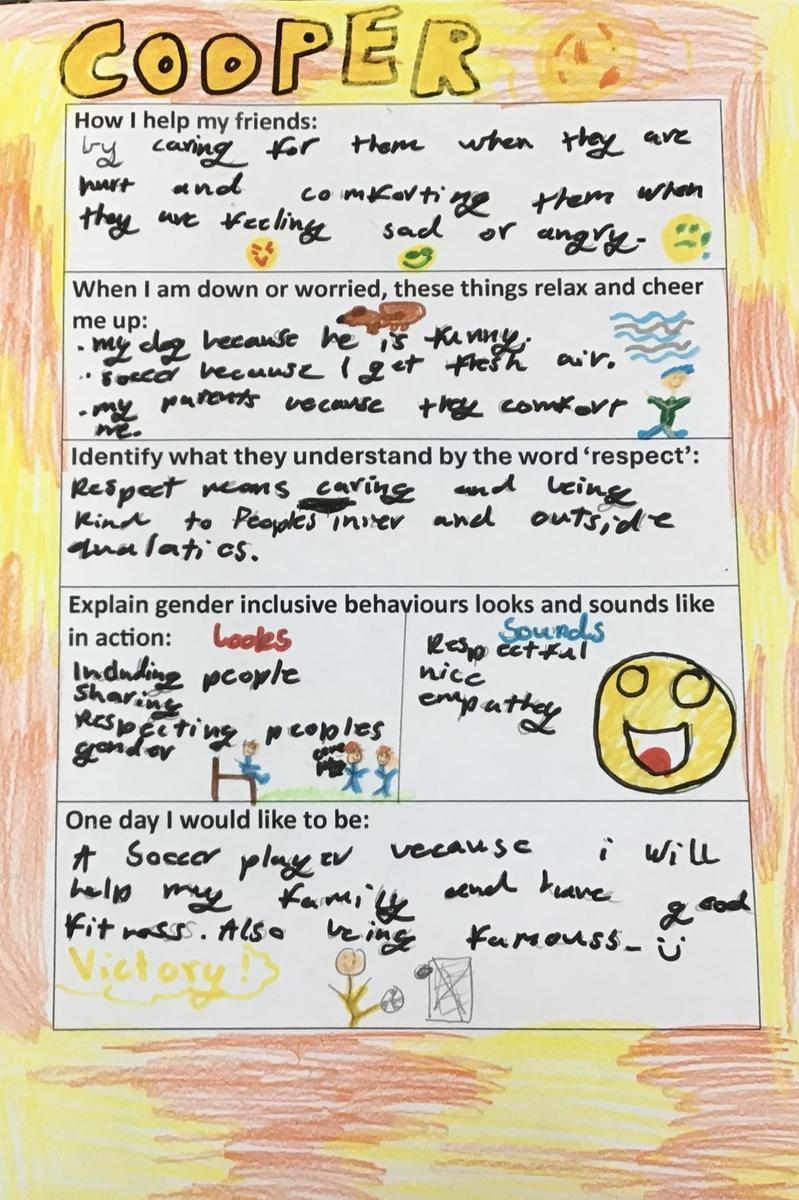 COOPER
How I help my friends:
by caring for them when they are
hurt and comforting them when
they are feeling sad or angry.
When I am down or worried, these things relax and cheer
me up:
. my dog because he is funny.
. soccer because I get fresh air.
. my parents because they comfort
me.
Identify what they understand by the word ‘respect’:
Respect means caring and being
kind to Peoples inner and outside
qualatics.
Explain gender inclusive behaviours looks and sounds like
in action: Looks
Including people
Sharing
Respecting peoples
gender
Sounds
Respectful
nice
empathey
One day I would like to be:
A Soccer player because i will
help my family and have good
Fitness. Also being famouss.
Victory!